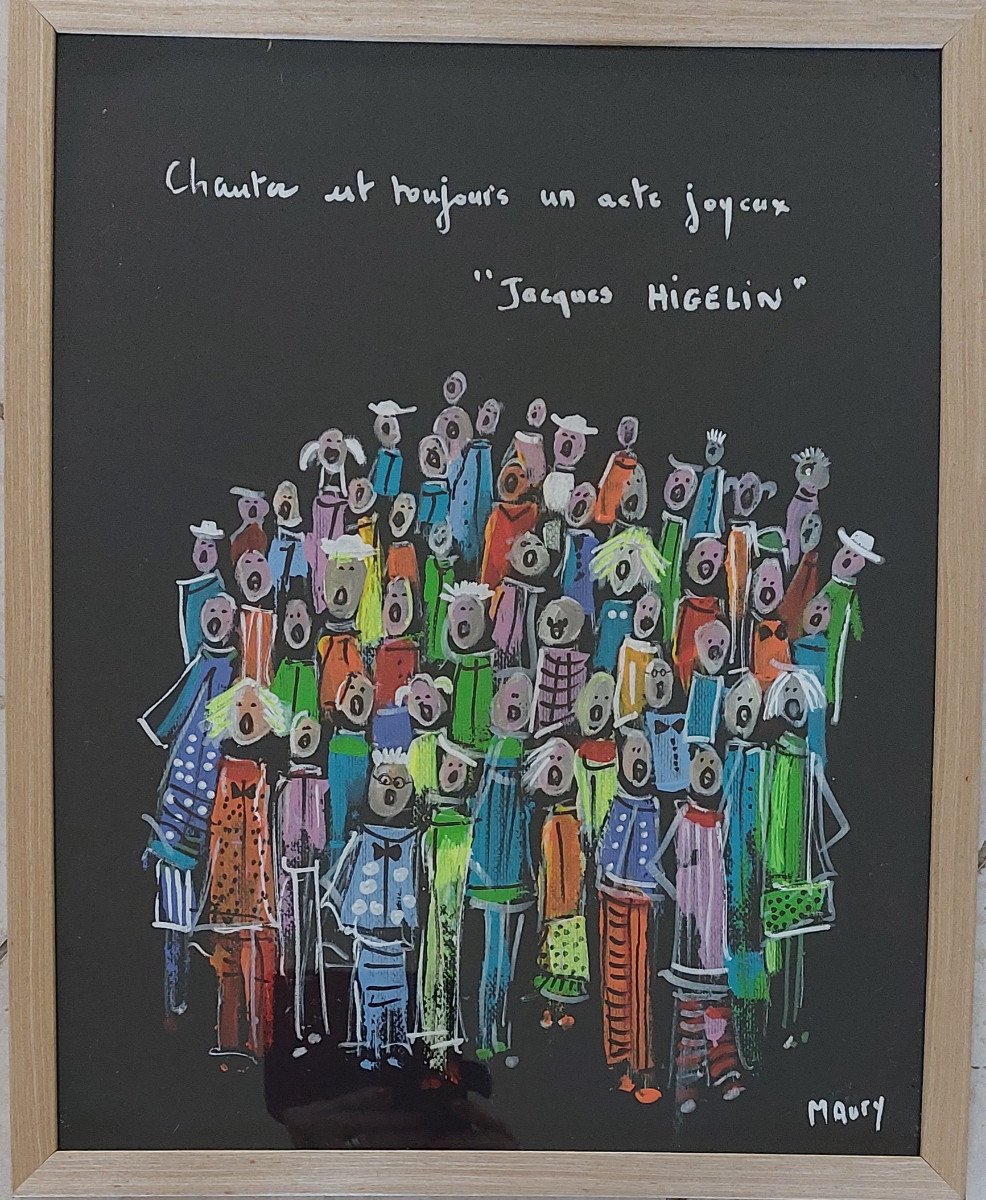 Chanter est toujours un acte joyeux
"Jacques HiGELiN"
MAury